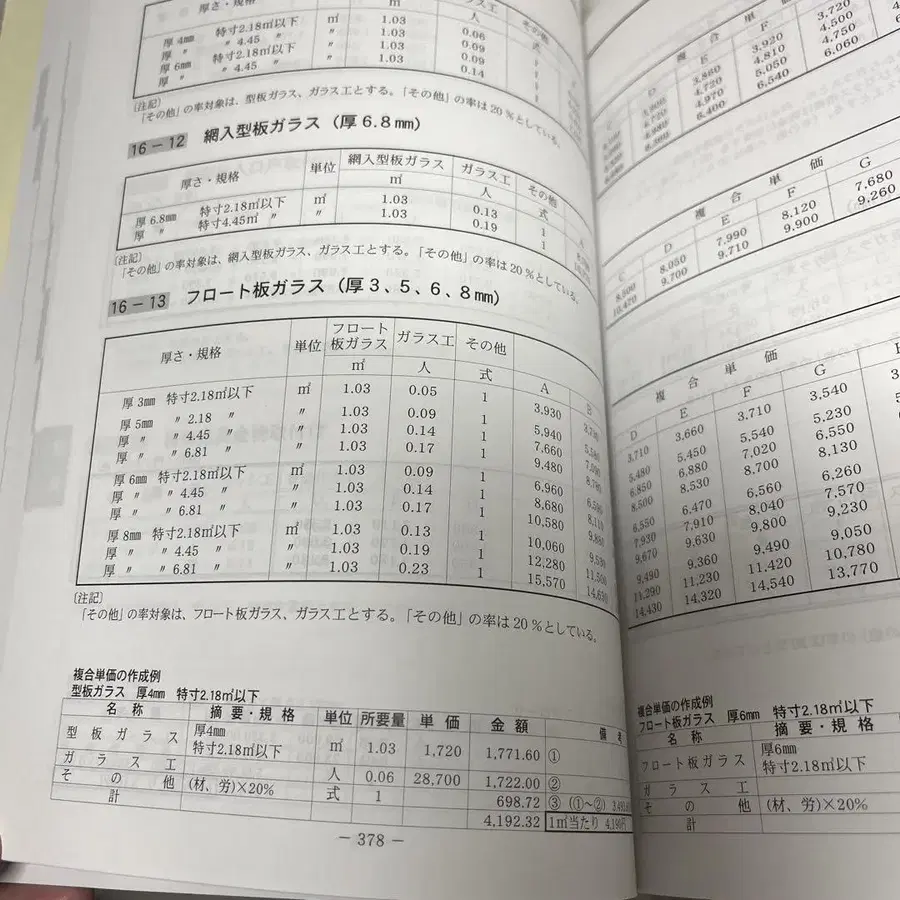 厚さ・規格 ㎡ 人 式
厚4mm 特寸2.18㎡以下 ㎡ 1.03 0.06
厚〃 〃 4.45 〃 〃 1.03 0.09
厚6mm 特寸2.18㎡以下 〃 1.03 0.09
厚〃 〃 4.45 〃 〃 1.03 0.14
〔注記〕
「その他」の率対象は、型板ガラス、ガラス工とする。「その他」の率は20%としている。
16-12 網入型板ガラス(厚6.8㎜)
厚さ・規格 単位 網入型板ガラス ガラス工 その他
㎡ 人 式
厚6.8mm 特寸2.18㎡以下 ㎡ 1.03 0.13 1
厚〃 特寸4.45㎡ 〃 〃 1.03 0.19 1
〔注記〕
「その他」の率対象は、網入型板ガラス、ガラス工とする。「その他」の率は20%としている。
16-13 フロート板ガラス(厚3、5、6、8㎜)
厚さ・規格 単位 フロート板ガラス ガラス工 その他
㎡ 人 式 A B
厚3mm 特寸2.18㎡以下 ㎡ 1.03 0.05 1 3,930
厚5mm 〃 2.18 〃 〃 1.03 0.09 1 5,940
厚〃 〃 4.45 〃 〃 1.03 0.14 1 7,660
厚〃 〃 6.81 〃 〃 1.03 0.17 1 9,480
厚6mm 特寸2.18㎡以下 ㎡ 1.03 0.09 1 6,960
厚〃 〃 4.45 〃 〃 1.03 0.14 1 8,680
厚〃 〃 6.81 〃 〃 1.03 0.17 1 10,580
厚8mm 特寸2.18㎡以下 ㎡ 1.03 0.13 1 10,060
厚〃 〃 4.45 〃 〃 1.03 0.19 1 12,280
厚〃 〃 6.81 〃 〃 1.03 0.23 1 15,570
〔注記〕
「その他」の率対象は、フロート板ガラス、ガラス工とする。「その他」の率は20%としている。
複合単価の作成例
型板ガラス 厚4mm 特寸2.18㎡以下
名称 摘要・規格 単位 所要量 単価 金額 備考
型板ガラス 厚4mm 特寸2.18㎡以下 ㎡ 1.03 1,720 1,771.60 ①
ガラス工 人 0.06 28,700 1,722.00 ②
その他 (材、労)×20% 式 1 698.72 ③ (①~②)
計 4,192.32 1㎡当たり 4,190円
- 378 -
複合単価
E F
3,860 3,920 3,720
4,720 4,810 4,500
4,970 5,050 4,750
6,400 6,540 6,060
複合単価
C D E F G
8,500 8,050 7,990 8,120 7,680
10,470 9,700 9,710 9,900 9,260
複合単価
D E F G
3,710 3,660 3,710 3,540
5,480 5,450 5,540 5,230
6,850 6,880 7,020 6,550
8,500 8,530 8,700 8,130
6,550 6,470 6,560 6,260
7,930 7,910 8,040 7,570
9,670 9,630 9,800 9,230
9,490 9,360 9,490 9,050
11,290 11,230 11,420 10,780
14,430 14,320 14,540 13,770
複合単価の作成例
フロート板ガラス 厚6mm 特寸2.18㎡以下
名称 摘要・規格
フロート板ガラス 厚6mm 特寸2.18㎡以下
ガラス工
その他 (材、労)×20%
計